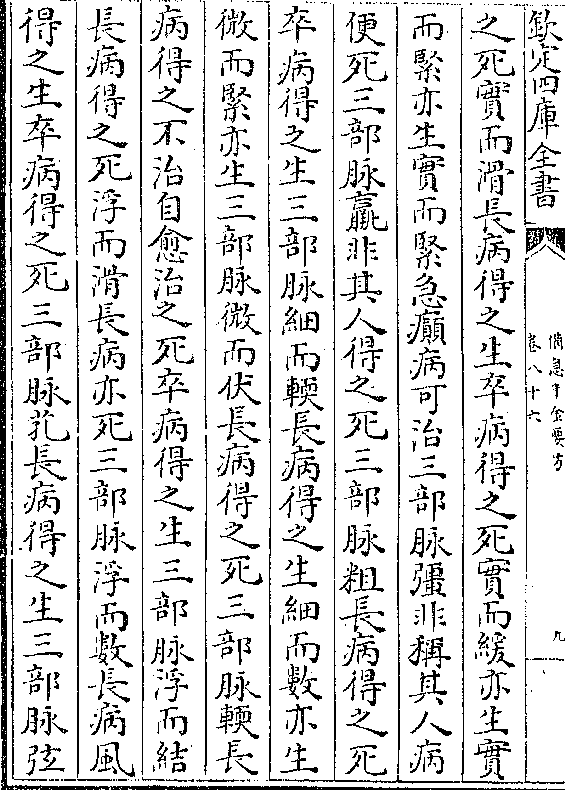 欽定四庫全書
備急千金要方
卷八十六
九
之死實而滑長病得之生卒病得之死實而緩亦生實
而緊亦生實而緊急癲病可治三部脉彊非稱其人病
便死三部脉羸非其人得之死三部脉粗長病得之死
卒病得之生三部脉細而輭長病得之生細而數亦生
微而緊亦生三部脉微而伏長病得之死三部脉輭長
病得之不治自愈治之死卒病得之生三部脉浮而結
長病得之死浮而滑長病亦死三部脉浮而數長病風
得之生卒病得之死三部脉芤長病得之生三部脉弦